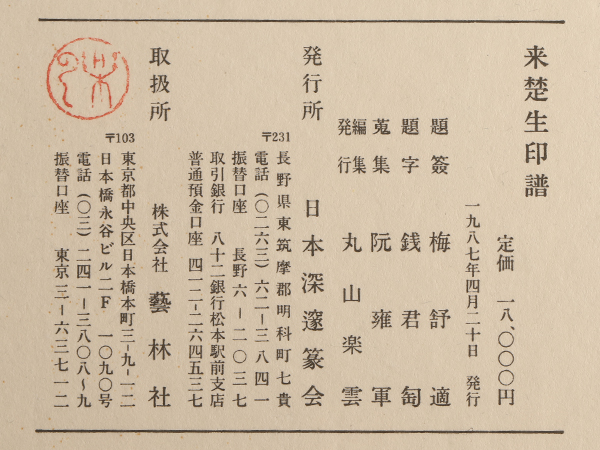 来楚生印譜
定価 一八、〇〇〇円
一九八七年四月二十日 発行
題簽 梅舒適
題字 銭君匋
蒐集 阮雍軍
編集発行 丸山楽雲
発行所 日本深邃篆会
〒231 長野県東筑摩郡明科町七貴
電話（〇二六三）六二－三八四一
振替口座 長野六－二〇三七
取引銀行 八十二銀行松本駅前支店
普通預金口座 四一二－二六四五三七
取扱所 株式会社 藝林社
〒103 東京都中央区日本橋本町三－九－一二
日本橋永谷ビル二一F 一〇九〇号
電話（〇三）二四一－三八〇八〜九
振替口座 東京三－六三七一二